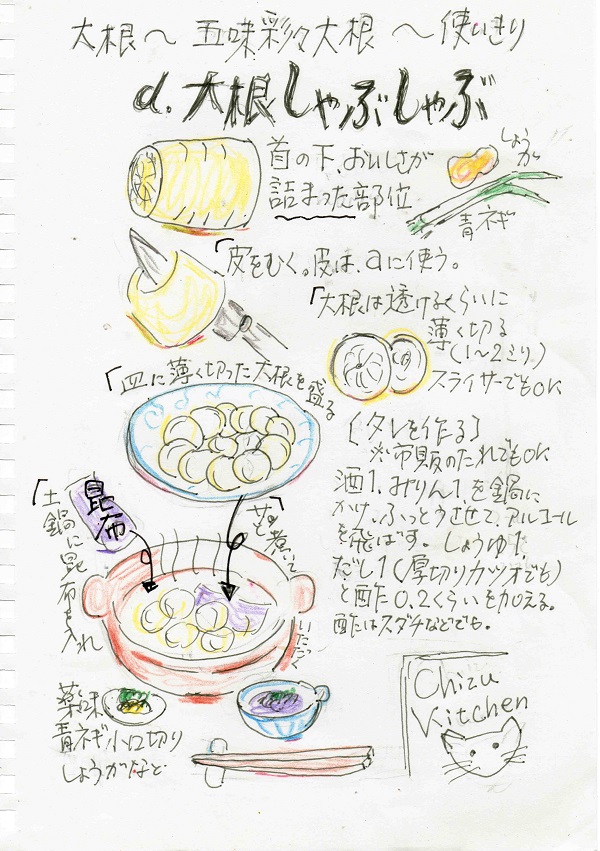 大根～五味彩々大根～使いきり
d.大根しゃぶしゃぶ
首の下、おいしさが
詰まった部位
しょうが
青ネギ
「皮をむく。皮は、aに使う。
「大根は透けるくらいに
薄く切る
(1～2ミリ)
スライサーでもOK
「皿に薄く切った大根を盛る
[タレを作る]
※市販のたれでもOK
酒1、みりん1、を鍋に
かけ、ふっとうさせて、アルコール
を飛ばす。しょうゆ1、
だし1(厚切りカツオでも)
と酢0.2くらいを加える。
酢はスダチなどでも。
「土鍋に昆布を入れ
昆布
煮て
いただく
薬味
青ネギ小口切り
しょうがなど
Chizu
Kitchen